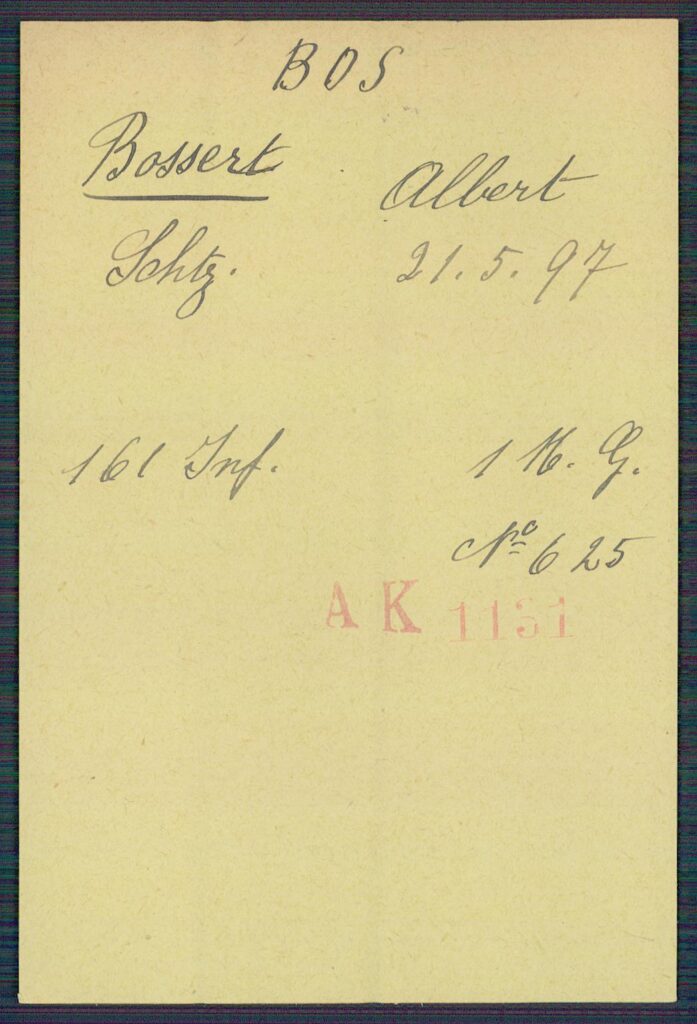 BOS
Bossert Albert
Schtz. 21. 5. 97
161 Inf. 1 M. G.
No 625
AK 1131